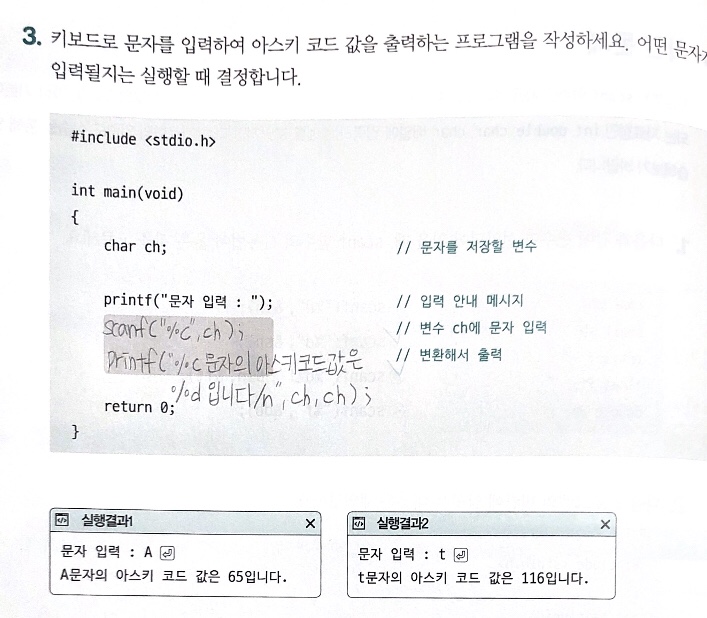 3. 키보드로 문자를 입력하여 아스키 코드 값을 출력하는 프로그램을 작성하세요. 어떤 문자가
입력될지는 실행할 때 결정합니다.
#include <stdio.h>
int main(void)
{
char ch; // 문자를 저장할 변수
printf("문자 입력 : "); // 입력 안내 메시지
scanf("%c",ch); // 변수 ch에 문자 입력
printf("%c문자의 아스키코드값은 // 변환해서 출력
%d입니다/n",ch,ch);
return 0;
}
실행결과1
문자 입력 : A
A문자의 아스키 코드 값은 65입니다.
실행결과2
문자 입력 : t
t문자의 아스키 코드 값은 116입니다.